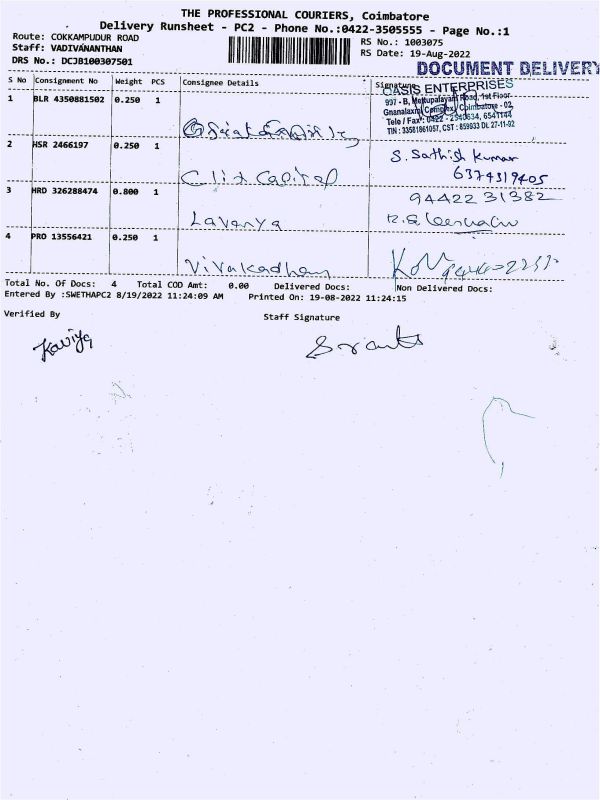 THE PROFESSIONAL COURIERS, Coimbatore
Delivery Runsheet - PC2 - Phone No.:0422-3505555 - Page No.:1
Route: COKKAMPUDUR ROAD
Staff: VADIVANANTHAN
DRS No.: DCJB100307501
RS No.: 1003075
RS Date: 19-Aug-2022
DOCUMENT DELIVERY
S No Consignment No Weight PCS Consignee Details Signature
OASIS ENTERPRISES
997 - B, Mettupalayam Road, 1st Floor
Gnanalaxmi Complex, Coimbatore - 02,
Tele / Fax: 0422 - 2540634, 6541144
TIN : 33581861057, CST : 859933 DL 27-11-02
1 BLR 4350881502 0.250 1
2 HSR 2466197 0.250 1
Clix Capital
S. Sathish Kumar
6374319405
3 HRD 326288474 0.800 1
Lavanya
94422 31382
4 PRO 13556421 0.250 1
Total No. Of Docs: 4 Total COD Amt: 0.00 Delivered Docs: Non Delivered Docs:
Entered By :SWETHAPC2 8/19/2022 11:24:09 AM Printed On: 19-08-2022 11:24:15
Verified By Staff Signature
Kaviya